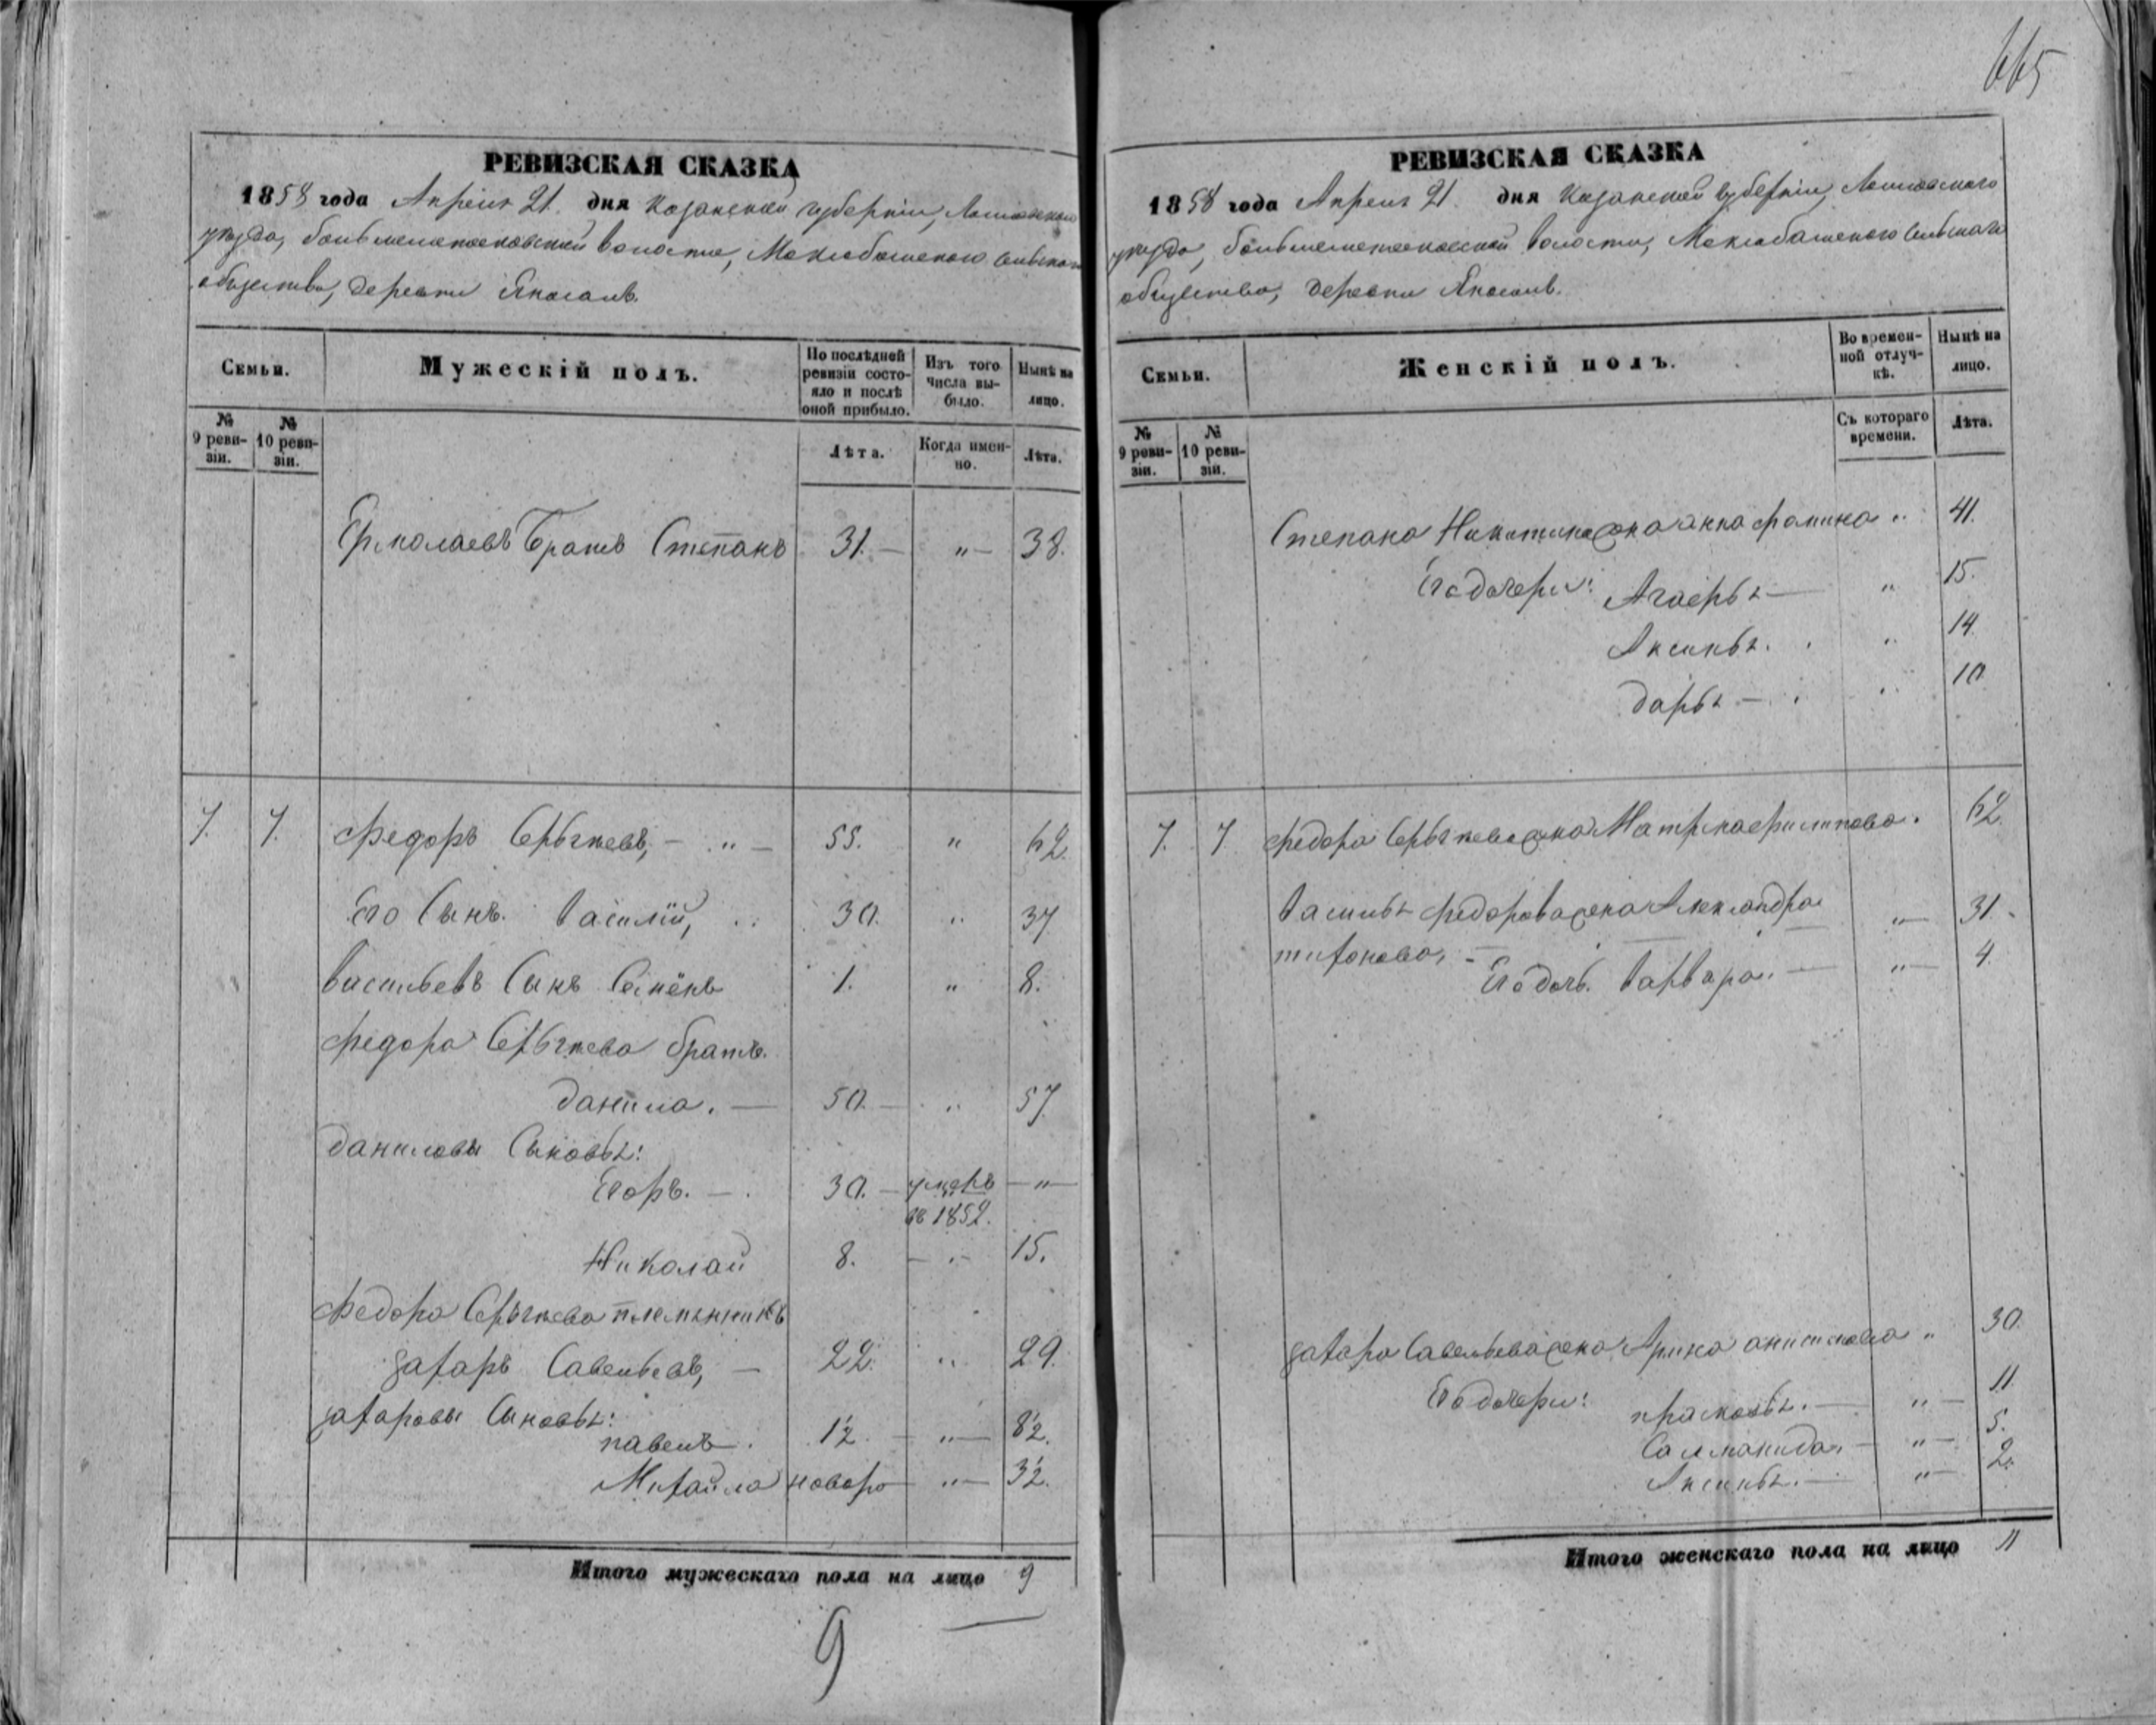 665
РЕВИЗСКАЯ СКАЗКА
1858 года Апреля 21. дня Казанской губернiи,
уезда, волости, сельскаго
общества, деревни
Семьи.
Мужескiй полъ.
По послѣдней ревизiи состояло и послѣ оной прибыло.
Изъ того числа выбыло.
Нынѣ на лицо.
№ 9 ревизiи.
№ 10 ревизiи.
Лѣта.
Когда именно.
Лѣта.
Ермолаевъ Братъ Степанъ 31. — „ — 38.
7. 7. Федоръ — „ — 55. „ 62.
Его Сынъ. Василiй, 30. „ 37
Васильевъ Сынъ Семёнъ 1. „ 8.
Федора братъ.
Данила. — 50. — „ 57
Даниловы Сыновья:
Егоръ. — 30. — умеръ — „ —
въ 1852.
Николай 8. — „ — 15.
Федора племянникъ
Захаръ Савельевъ, — 22. „ 29.
Захаровы Сыновья:
павелъ. 1½. — „ — 8½.
Михайла новоро — „ — 3½.
Итого мужескаго пола на лицо 9
9
РЕВИЗСКАЯ СКАЗКА
1858 года Апреля 21. дня Казанской губернiи,
уезда, волости, сельскаго
общества, деревни
Семьи.
Женскiй полъ.
Во временной отлучкѣ.
Нынѣ на лицо.
№ 9 ревизiи.
№ 10 ревизiи.
Съ котораго времени.
Лѣта.
Степана Никитина жена анна фомина „ 41.
Его дочери: Агафья — „ 15.
Аксинья. „ 14.
Дарья — „ 10.
7. 7. Федора жена Матрена филипова. 62.
Василья Федорова жена Александра „ — 31.
тихонова, —
Его дочь. Варвара. — „ — 4.
Захара Савельева жена Арина „ 30.
Его дочери: прасковья. — „ — 11.
Саломанида, — „ — 5.
Аксинья. — „ — 2.
Итого женскаго пола на лицо 11